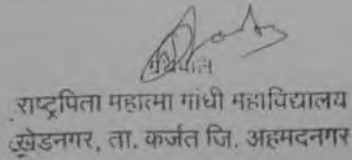 ग्रंथपाल
राष्ट्रपिता महात्मा गांधी महाविद्यालय
खेडनगर, ता. कर्जत जि. अहमदनगर